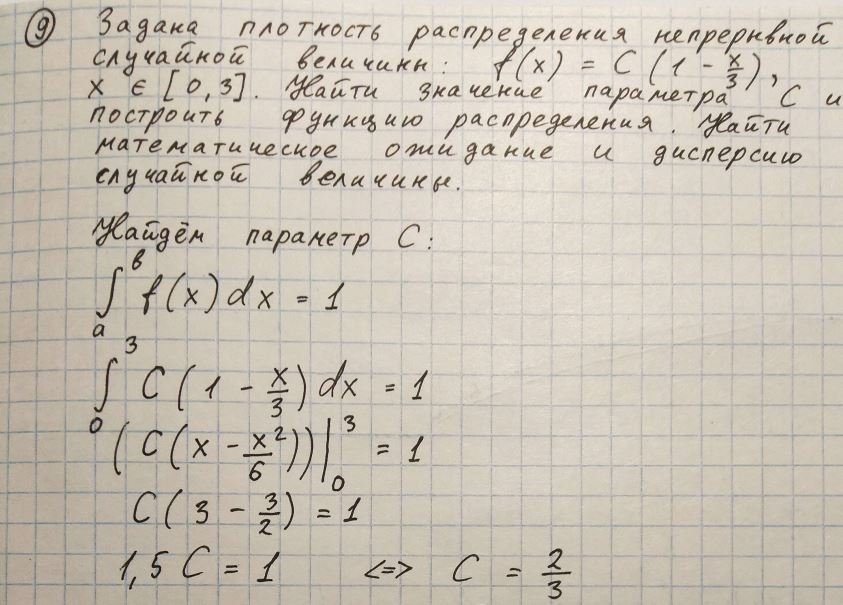 9 Задана плотность распределения непрерывной
случайной величины: f(x) = C(1 - x/3),
x ∈ [0,3]. Найти значение параметра C и
построить функцию распределения. Найти
математическое ожидание и дисперсию
случайной величины.
Найдём параметр C:
∫_a^b f(x)dx = 1
∫_0^3 C(1 - x/3)dx = 1
(C(x - x²/6))|_0^3 = 1
C(3 - 3/2) = 1
1,5C = 1 <=> C = 2/3